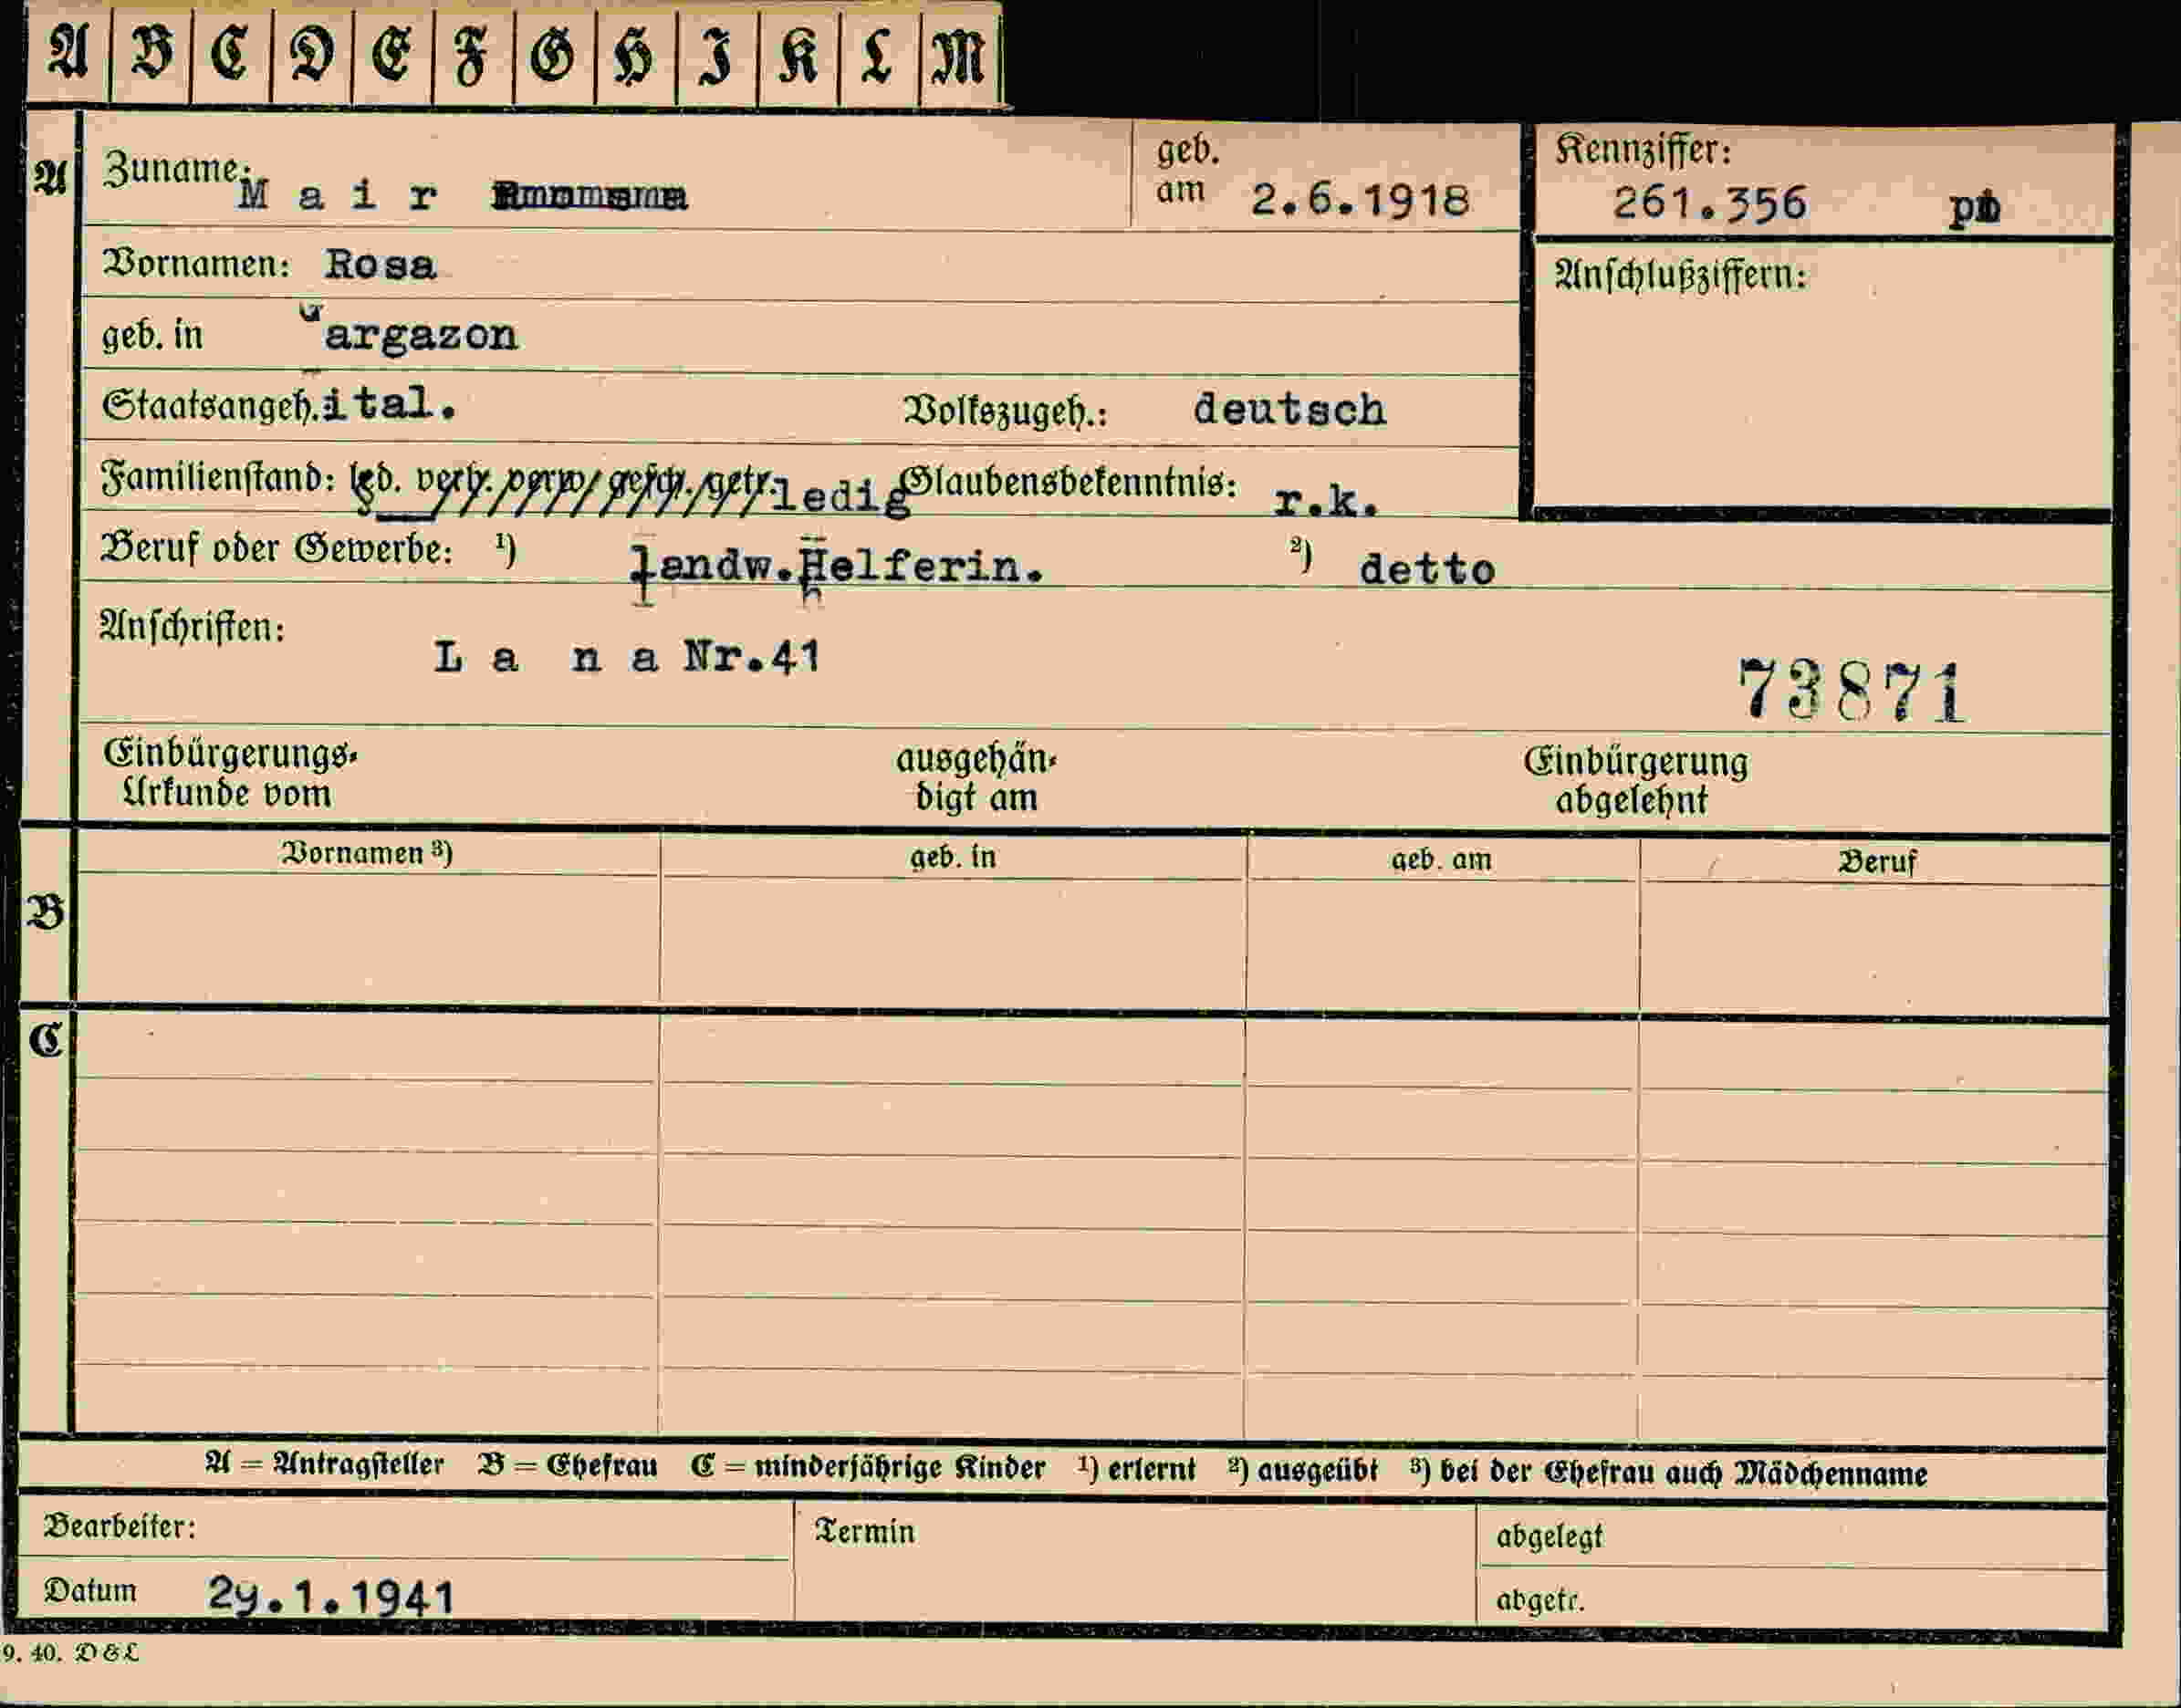 A B C D E F G H I K L M
A
Zuname: Mair
geb. am 2.6.1918
Kennziffer: 261.356
Vornamen: Rosa
Anschlußziffern:
geb. in Gargazon
Staatsangeh. ital. Volkszugeh.: deutsch
Familienstand: led. verh. verw. gesch. getr. ledig Glaubensbekenntnis: r.k.
Beruf oder Gewerbe: ¹) landw.Helferin. ²) detto
Anschriften:
Lana Nr.41
73871
Einbürgerungs-
Urkunde vom
ausgehän-
digt am
Einbürgerung
abgelehnt
B
Vornamen ³) geb. in geb. am Beruf
C
A = Antragsteller B = Ehefrau C = minderjährige Kinder ¹) erlernt ²) ausgeübt ³) bei der Ehefrau auch Mädchenname
Bearbeiter:
Termin
abgelegt
Datum 2y.1.1941
abgetr.
9. 40. D & L